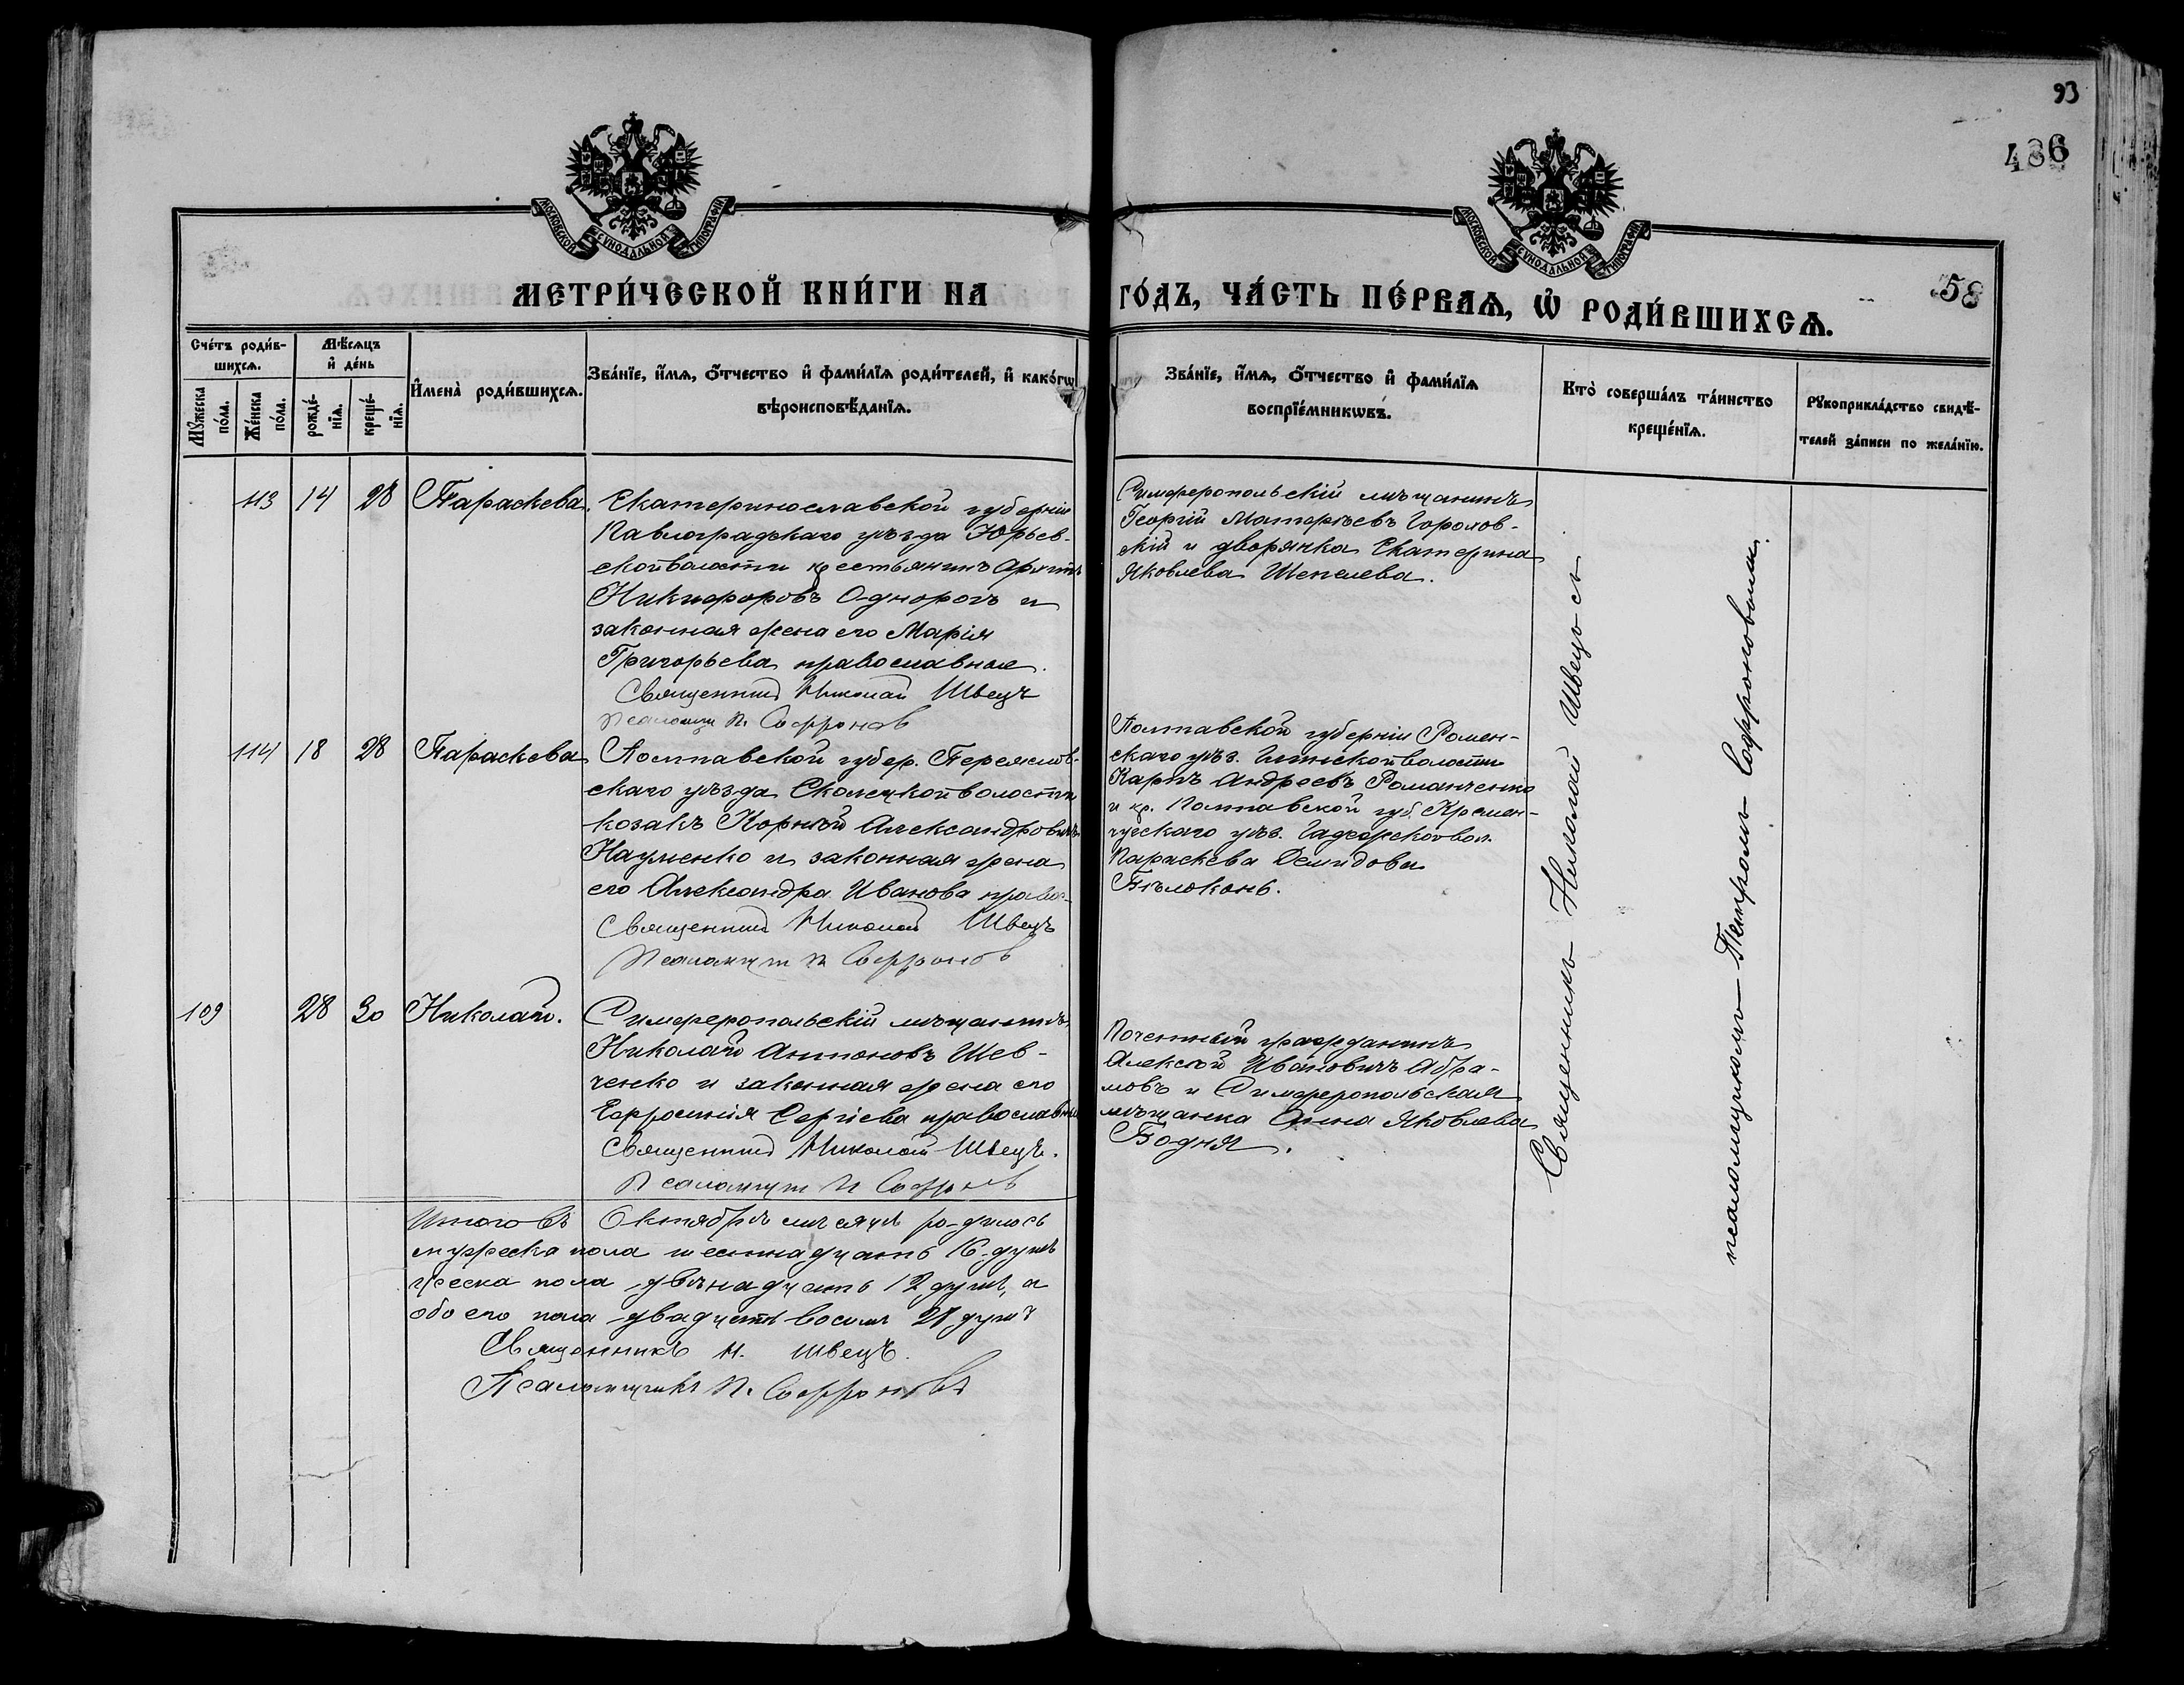 93
486
58
МОСКОВСКОЙ СѴНОДАЛЬНОЙ ТИПОГРАФІИ
МОСКОВСКОЙ СѴНОДАЛЬНОЙ ТИПОГРАФІИ
МЕТРИ́ЧЕСКОЙ КНИ́ГИ НА
ГО́ДЪ, ЧА́СТЬ ПЕ́РВАѦ, Ѡ҆ РОДИ́ВШИХСѦ.
Сче́тъ роди́в-
шихсѧ.
Мꙋжеска по́ла.
Же́нска по́ла.
Мѣ́сѧцъ
и҆ де́нь
рожде́-
нїѧ.
креще́-
нїѧ.
И҆мена̀ роди́вшихсѧ.
Зва́нїе, и҆́мѧ, о҆́тчество и҆ фами́лїѧ роди́телей, и҆ како́гѡ
вѣроисповѣ́данїѧ.
Зва́нїе, и҆́мѧ, о҆́тчество и҆ фами́лїѧ
воспрїе́мникѡвъ.
Кто̀ соверша́лъ та́инство
креще́нїѧ.
Рꙋкоприкла́дство свидѣ́-
телей за́писи по жела́нїю.
113 14 28 Параскева.
Екатеринославской губерніи
Павлоградскаго уѣзда Юрьев-
ской волости крестьянинъ
Никифоровъ Однорогъ и
законная жена его Марія
Григорьева православные.
Священникъ Николай Швецъ
Псаломщ П. Софронов
Симферопольскій мѣщанинъ
Георгій
скій и дворянка Екатерина
Яковлева Шепелева.
114 18 28 Параскева
Полтавской губер. Переяслов-
скаго уѣзда волости
козакъ Корнѣй Александровичъ
Науменко и законная жена
его Александра Иванова правос-
Священникъ Николай Швецъ
Псаломщик П Софронов
Полтавской губерніи Ромен-
скаго уѣз. волости
Карпъ Андреевъ Романченко
и кр. Полтавской губ. Кремен-
чугскаго уѣз. вол.
Параскева Демидова
Бѣлоконь.
109 28 30 Николай.
Симферопольскій мѣщанинъ
Николай Антоновъ Шев-
ченко и законная жена его
Евфросинія Сергіева православны
Священникъ Николай Швецъ.
Псаломщик П Софронов
Почетный гражданинъ
Алексѣй Ивановичъ Абра-
мовъ и Симферопольская
мѣщанка Анна Яковлева
Бодня.
Священникъ Николай Швецъ съ
псаломщикомъ Петромъ Софроновымъ.
Итого въ Октябрѣ мѣсяцѣ родилось
мужеска пола шестнадцать 16 душъ
женска пола двѣнадцать 12 душъ, а
обоего пола двадцать восемь 28 душъ
Священникъ Н. Швецъ.
Псаломщикъ П. Софроновъ